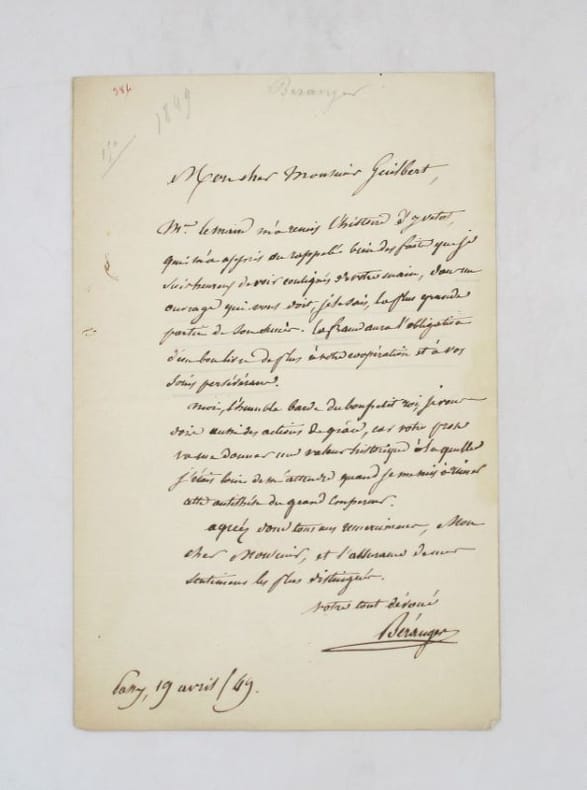 386
Béranger
1849
Mon cher Monsieur Guilbert,
Mr. Lemand m'a remis l'histoire d'yvetot,
qui m'a appris ou rappelé bien des faits que je
suis heureux de voir consignés de votre main, dans un
ouvrage qui vous doit, je le sais, la plus grande
partie de son succès. La france aura l'obligation
d'un bon livre de plus à votre coopération et à vos
soins persévérans.
Moi, l'humble barde du bon petit roi, je vous
dois aussi des actions de grâce, car votre prose
va me donner une valeur historique à laquelle
j'étais loin de m'attendre quand je me mis à rimer
cette antithèse du grand Empereur.
agréez donc tous mes remerciments, Mon
cher Monsieur, et l'assurance de mes
sentimens les plus distingués.
votre tout dévoué
Béranger
Passy, 19 avril / 49.